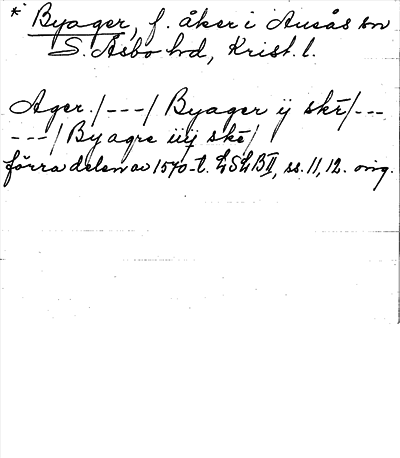 * Byager, f. åker i Ausås sn
S. Åsbo hd, Krist. l.
Ager. /---/ Byager ij skē/---
---/ Byagre iiij skē/
förra delen av 1570-t. LSLB II, ss. 11, 12. orig.